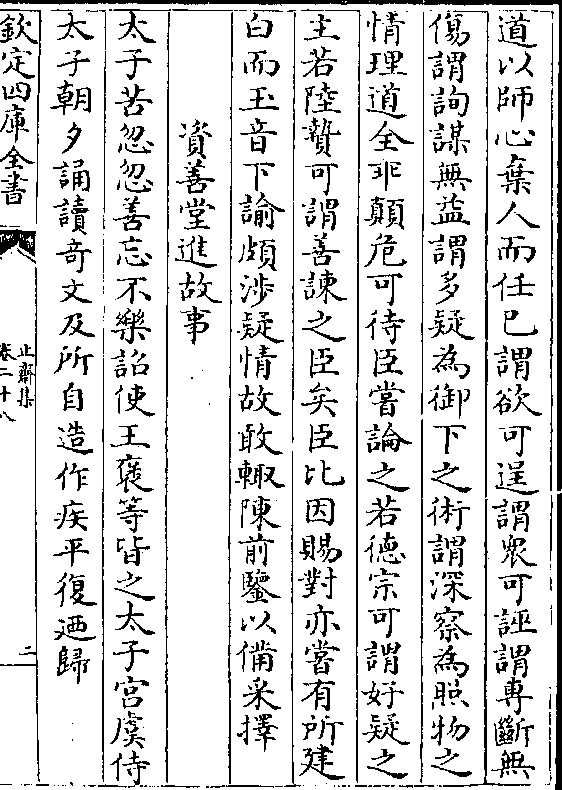 道以師心棄人而任已謂欲可逞謂衆可誣謂專斷無
傷謂詢謀無益謂多疑為御下之術謂深察為照物之
情理道全乖顛危可待臣嘗論之若德宗可謂好疑之
主若陸贄可謂善諫之臣矣臣比因賜對亦嘗有所建
白而玉音下諭頗涉疑情故敢輙陳前鑒以備采擇
資善堂進故事
太子苦忽忽善忘不樂詔使王褒等皆之太子宮虞侍
太子朝夕誦讀竒文及所自造作疾平復迺歸
欽定四庫全書
止齋集
卷二十八
二